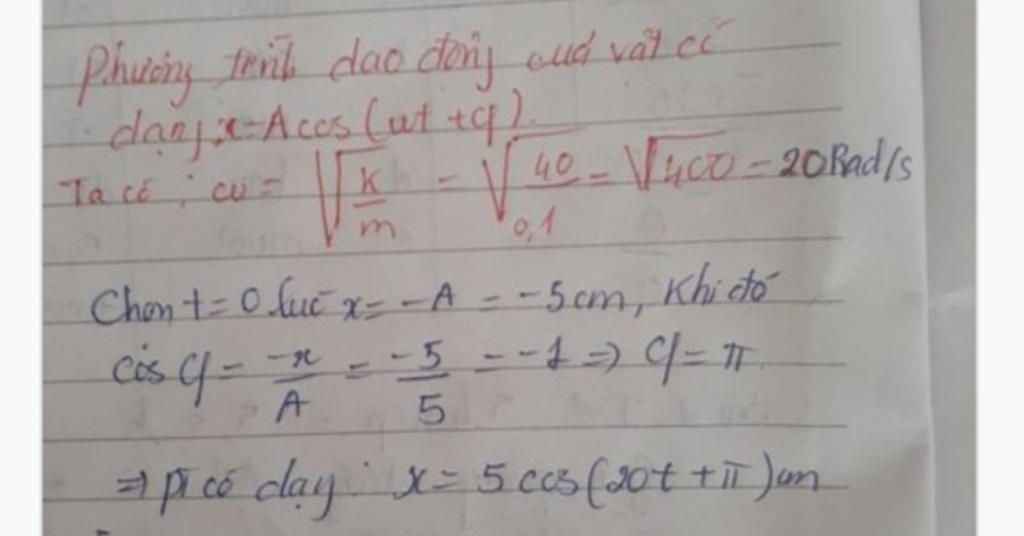 Phương trình dao động của vật có
dạng x=Acos(ωt+φ).
Ta có: ω = √(k/m) = √(40/0,1) = √400 = 20Rad/s
Chọn t=0 lúc x=-A=-5cm, Khi đó
cos φ = -x/A = -5/5 = -1 => φ=π
=> pt có dạng: x=5cos(20t+π)cm